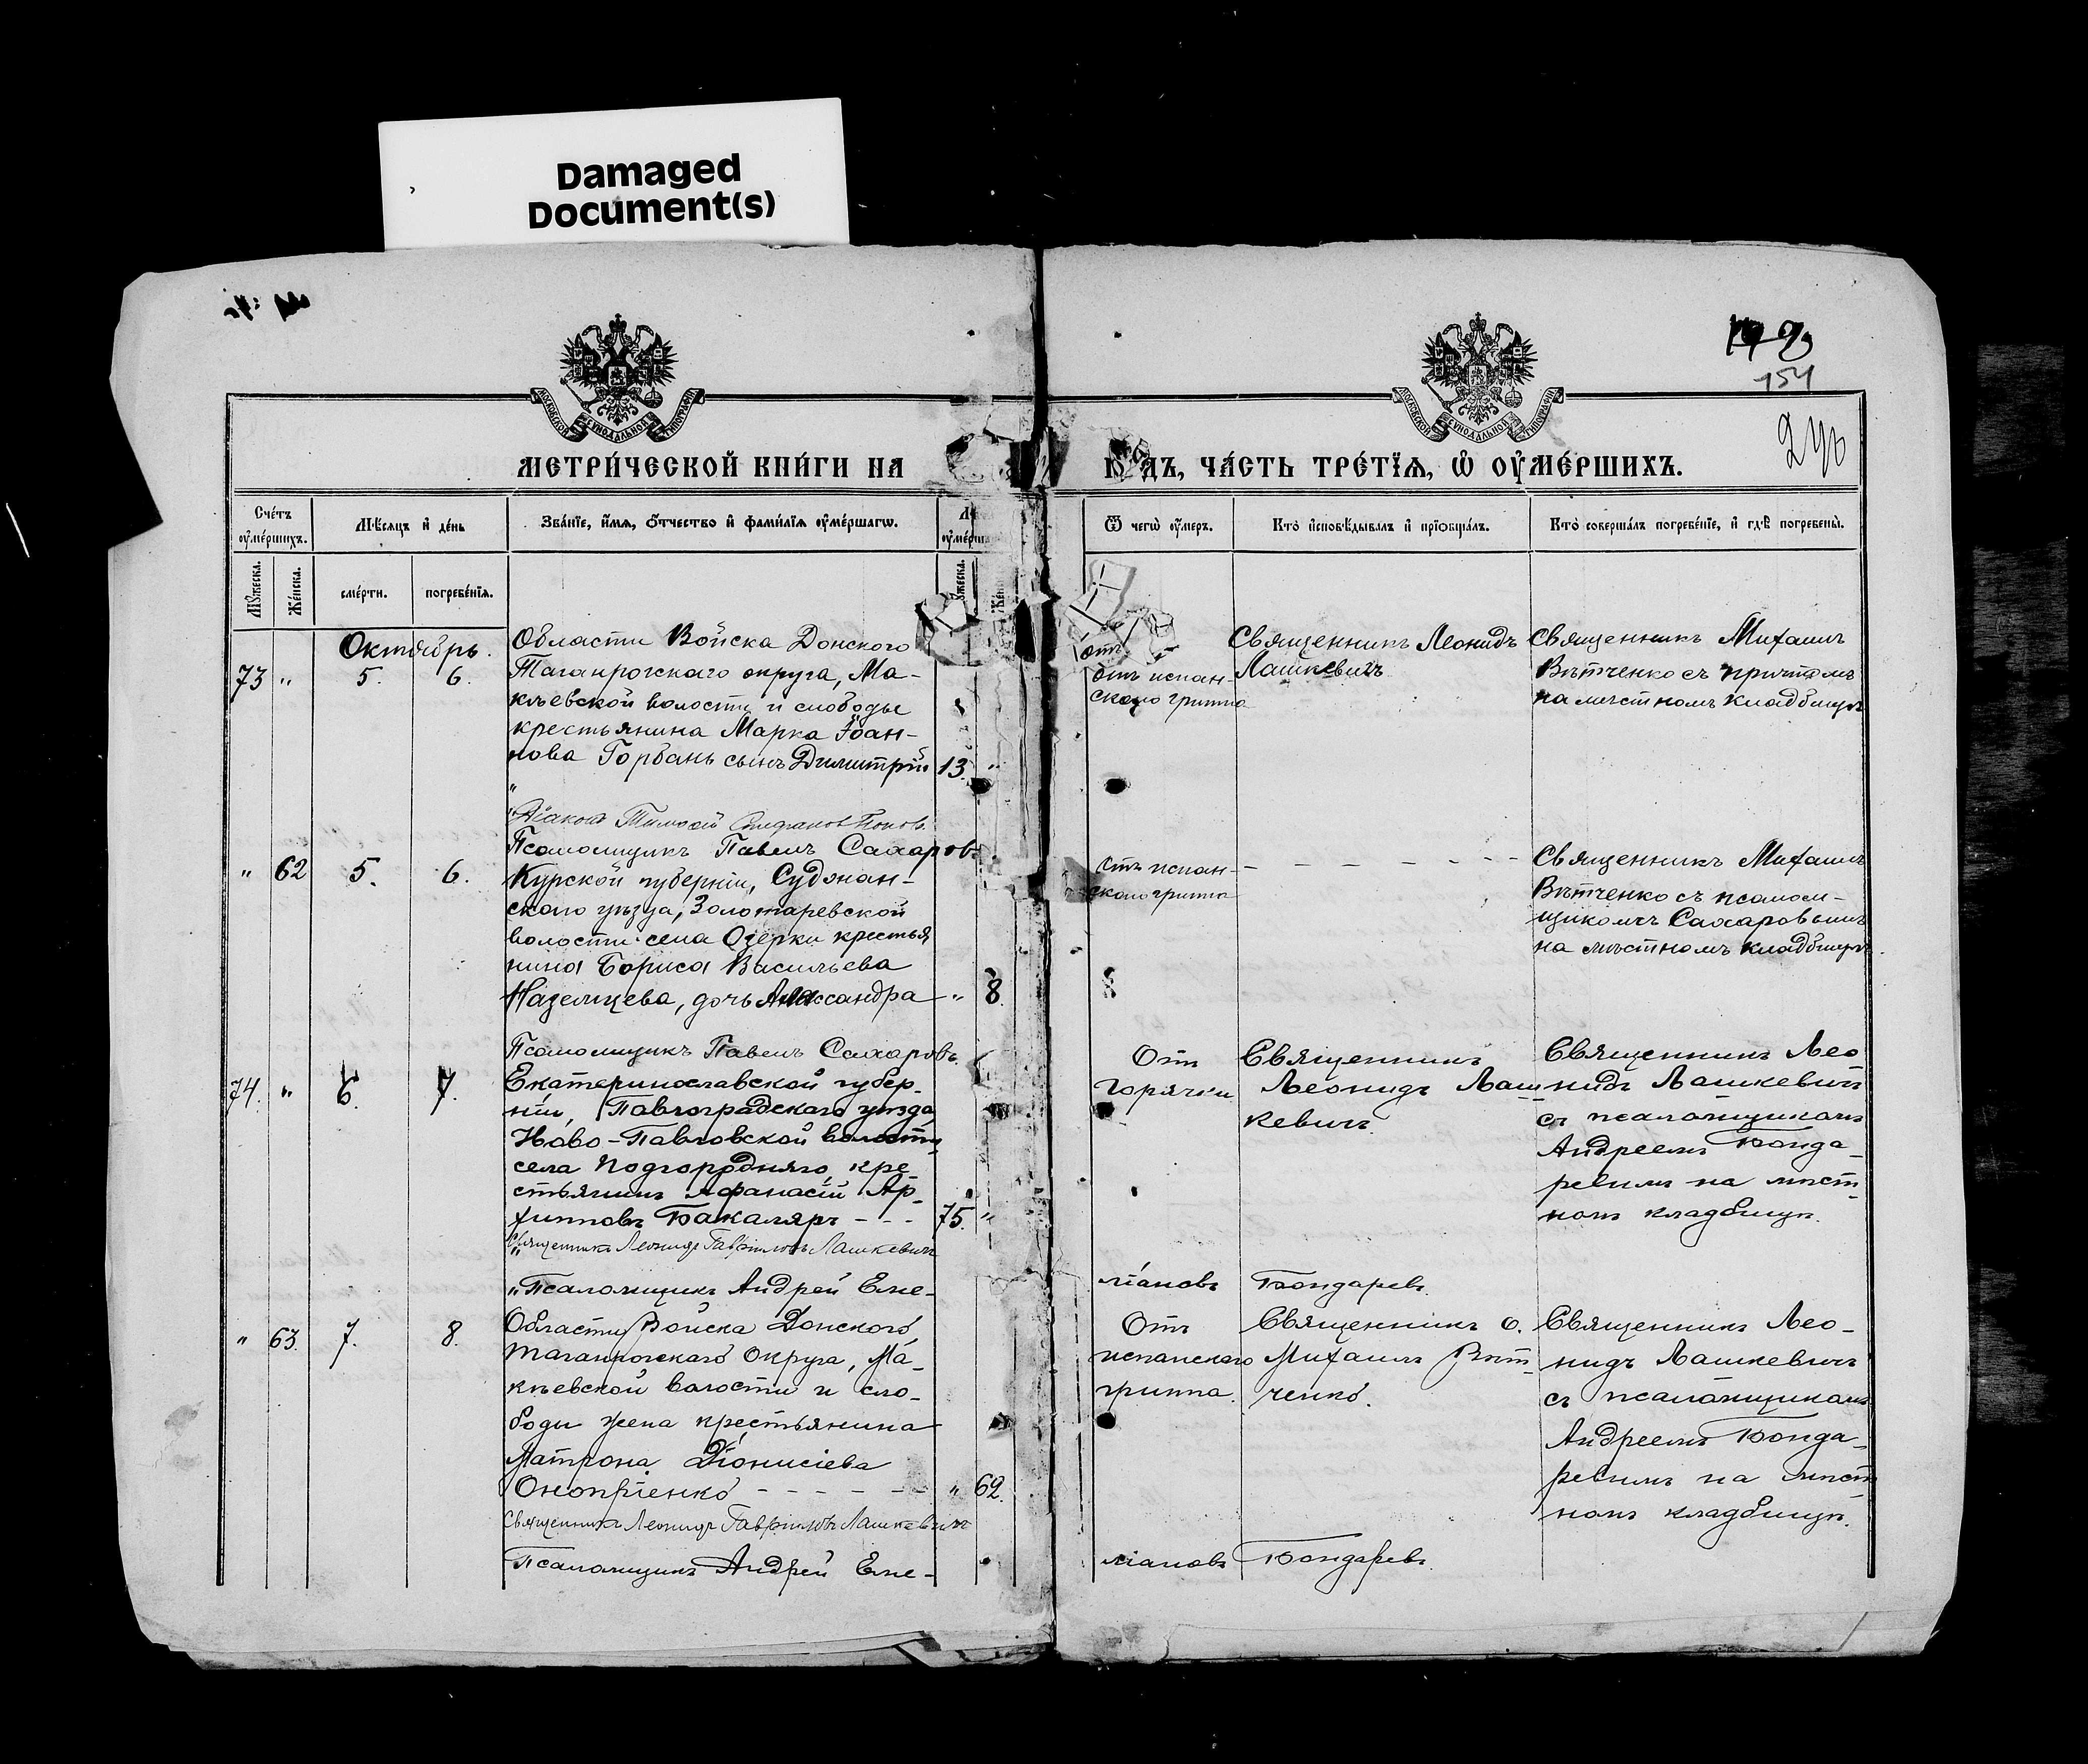 Damaged
Document(s)
154
МОСКОВСКОЙ СѴНОДАЛЬНОЙ ТИПОГРАФІИ
МОСКОВСКОЙ СѴНОДАЛЬНОЙ ТИПОГРАФІИ
МЕТРИ́ЧЕСКОЙ КНИ́ГИ НА
ДЪ, ЧА́СТЬ ТРЕ́ТЇѦ, Ѽ ОУ҆МЕ́РШИХЪ.
Сче́тъ оу҆ме́ршихъ.
Мѣ́сѧцъ и҆ де́нь
Зва́нїе, и҆́мѧ, ѻ҆́тчество и҆ фами́лїѧ оу҆ме́ршагѡ.
Ѿ чегѡ̀ оу҆́меръ.
Кто̀ и҆сповѣ́дывалъ и҆ прїѡбща́лъ.
Кто̀ соверша́лъ погребе́нїе, и҆ гдѣ̀ погребены̀.
Мꙋ́жеска.
Же́нска.
сме́рти.
погребе́нїѧ.
Октябрь.
73 " 5. 6.
Области Войска Донского
Таганрогскаго округа, Ма-
кѣевской волости и слободы
крестьянина Марка Іоан-
нова Горбань сынъ Димитрій 13. "
отъ
отъ испан-
скаго гриппа
Священникъ Леонидъ
Лашкевичъ
Священникъ Михаилъ
Вѣтченко съ причтомъ
на мѣстномъ кладбищѣ
Діаконъ Тимоѳей Стефановъ Поповъ
Псаломщикъ Павелъ Сахаровъ
" 62 5. 6.
Курской губерніи, Суджан-
скаго уѣзда, Золотаревской
волости села Озерки крестья
нина Бориса Васильева
дочь Александра " 8.
отъ испан-
скаго гриппа
Священникъ Михаилъ
Вѣтченко съ псалом-
щикомъ Сахаровымъ
на мѣстномъ кладбищѣ.
Псаломщикъ Павелъ Сахаровъ
74. " 6. 7.
Екатеринославской губер-
ніи, Павлоградскаго уѣзда
Ново-Павловской волости,
села Подгородняго, кре
стьянинъ Афанасій Ар-
хиповъ Бакаляръ - - - 75. "
Отъ
горячки
Священникъ
Леонидъ Лаш-
кевичъ.
Священникъ Лео
нидъ Лашкевичъ
съ псаломщикомъ
Андреемъ Бонда-
ревымъ на мѣст
номъ кладбищѣ.
Священникъ Леонидъ Гавриловъ Лашкевичъ
"Псаломщикъ Андрей Еме-
ліановъ Бондаревъ.
" 63. 7. 8.
Области Войска Донского,
Таганрогскаго Округа, Ма-
кѣевской волости и сло-
боды жена крестьянина
Матрона Діонисіева
Онопріенко - - - - - - " 62.
Отъ
испанскаго
гриппа.
Священникъ о.
Михаилъ Вѣт-
ченко.
Священникъ Лео-
нидъ Лашкевичъ
съ псаломщикомъ
Андреемъ Бонда-
ревымъ на мѣст
номъ кладбищѣ.
Священникъ Леонидъ Гавриловъ Лашкевичъ
Псаломщикъ Андрей Еме-
ліановъ Бондаревъ.